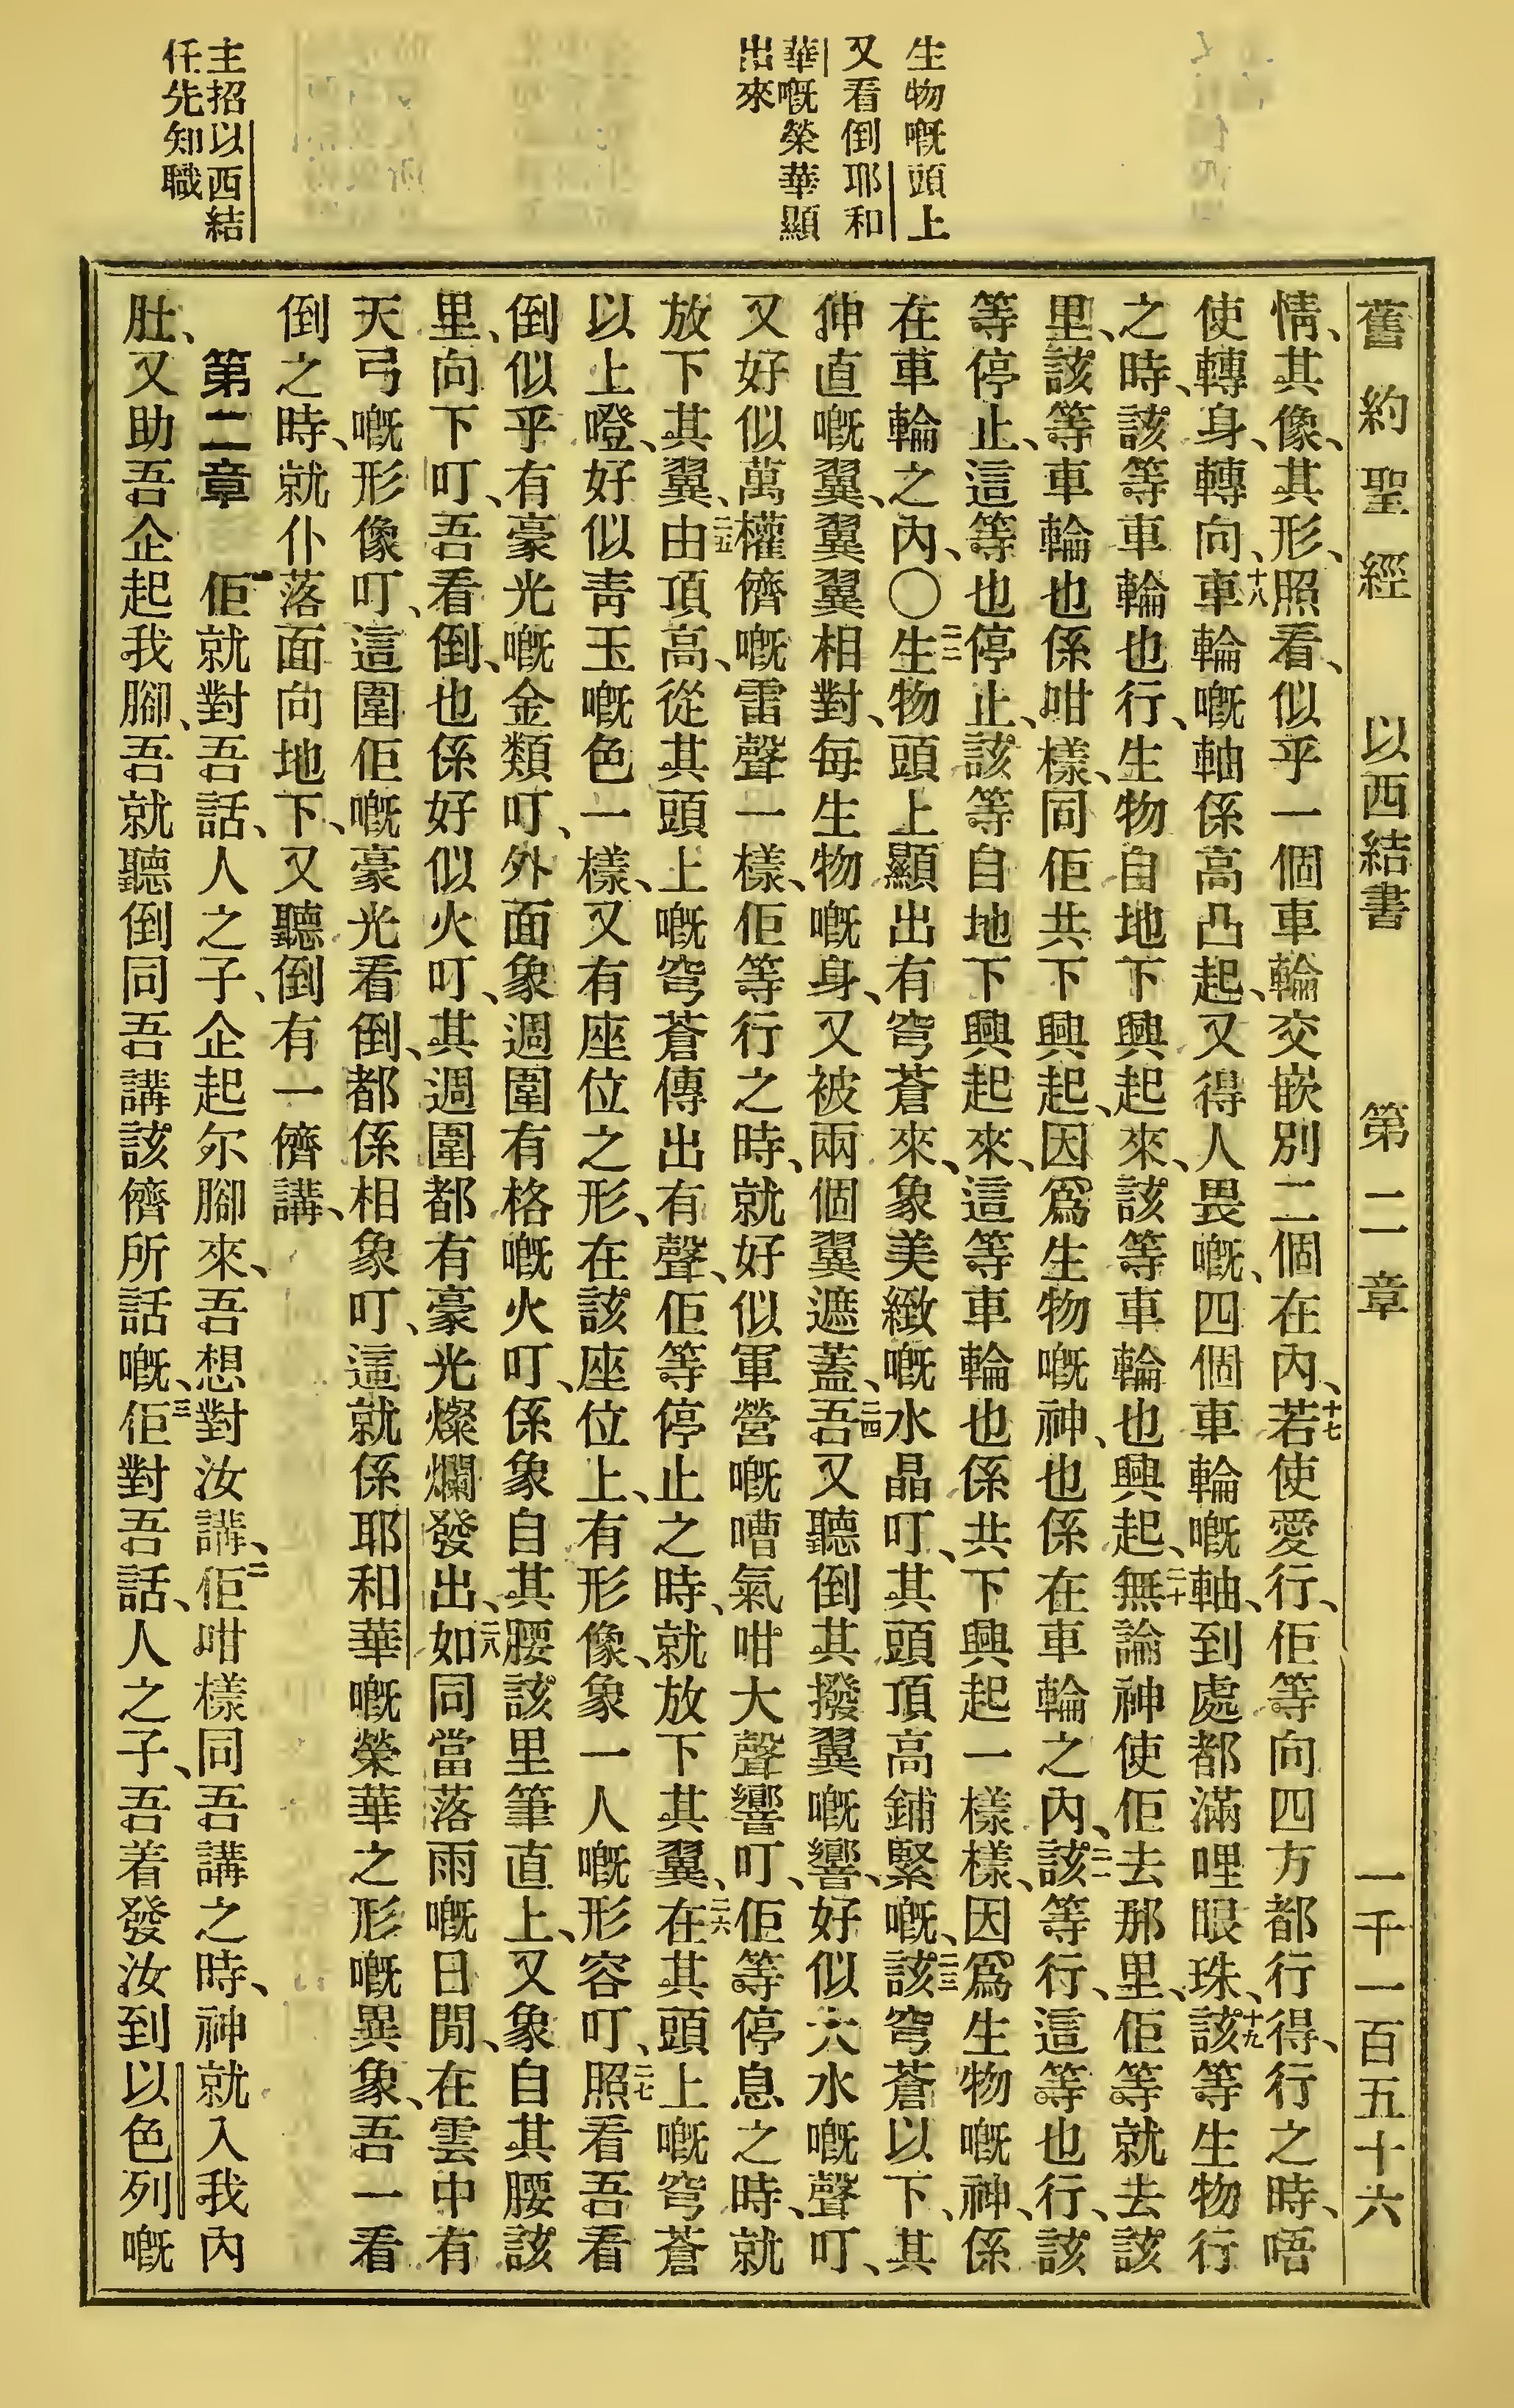 生物嘅頭上
又看倒耶和
華嘅榮華顯
出來
主招以西結
任先知職
舊約聖經 以西結書 第二章 一千一百五十六
情、其像、其形、照看、似乎一個車輪交嵌別二個在內、十七若使愛行、佢等向四方都行得、行之時、唔
使轉身、轉向、十八車輪嘅軸係高凸起、又得人畏嘅、四個車輪嘅軸、到處都滿哩眼珠、十九該等生物行
之時、該等車輪也行、生物自地下興起來、該等車輪也興起、二十無論神使佢去那里、佢等就去該
里、該等車輪也係咁樣、同佢共下興起、因爲生物嘅神、也係在車輪之內、二一該等行、這等也行、該
等停止、這等也停止、該等自地下興起來、這等車輪也係共下興起一樣樣、因爲生物嘅神、係
在車輪之內、〇二二生物頭上顯出有穹蒼來、象美緻嘅水晶叮、其頭頂高鋪緊嘅、二三該穹蒼以下、其
伸直嘅翼、翼翼相對、每生物嘅身、又被兩個翼遮蓋、二四吾又聽倒其撥翼嘅響、好似大水嘅聲叮、
又好似萬權儕嘅雷聲一樣、佢等行之時、就好似軍營嘅嘈氣咁大聲響叮、佢等停息之時、就
放下其翼、二五由頂高、從其頭上嘅穹蒼傳出有聲、佢等停止之時、就放下其翼、二六在其頭上嘅穹蒼
以上嶝、好似靑玉嘅色一樣、又有座位之形、在該座位上、有形像、象一人嘅形容叮、二七照看吾看
倒似乎有豪光嘅金類叮、外面象週圍有格嘅火叮、係象自其腰該里筆直上、又象自其腰該
里、向下叮、吾看倒、也係好似火叮、其週圍都有豪光燦爛發出、二八如同當落雨嘅日閒、在雲中有
天弓嘅形像叮、這圍佢嘅豪光看倒、都係相象叮、這就係耶和華嘅榮華之形嘅異象、吾一看
倒之時、就仆落面向地下、又聽倒有一儕講、
第二章 一佢就對吾話、人之子、企起尔腳來、吾想對汝講、二佢咁樣同吾講之時、神就入我內
肚、又助吾企起我腳、吾就聽倒同吾講該儕所話嘅、三佢對吾話、人之子、吾着發汝到以色列嘅